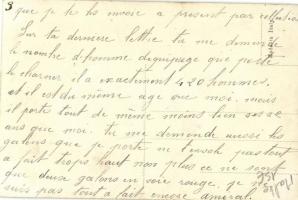 3 que je te les envoie a present par collection
Sur ta derniere lettre tu me demande
le nombre d'homme d'equipage que porte
le charner il a exactement 420 hommes
et il est du même age que moi. mais
il porte tout de même moins bien ses
ans que moi. tu me demande aussi les
galons que je porte ne crois pas tout
a fait trop haut non plus ce ne sont
que deux galons en soie rouge. je ne
suis pas tout a fait encore amiral.